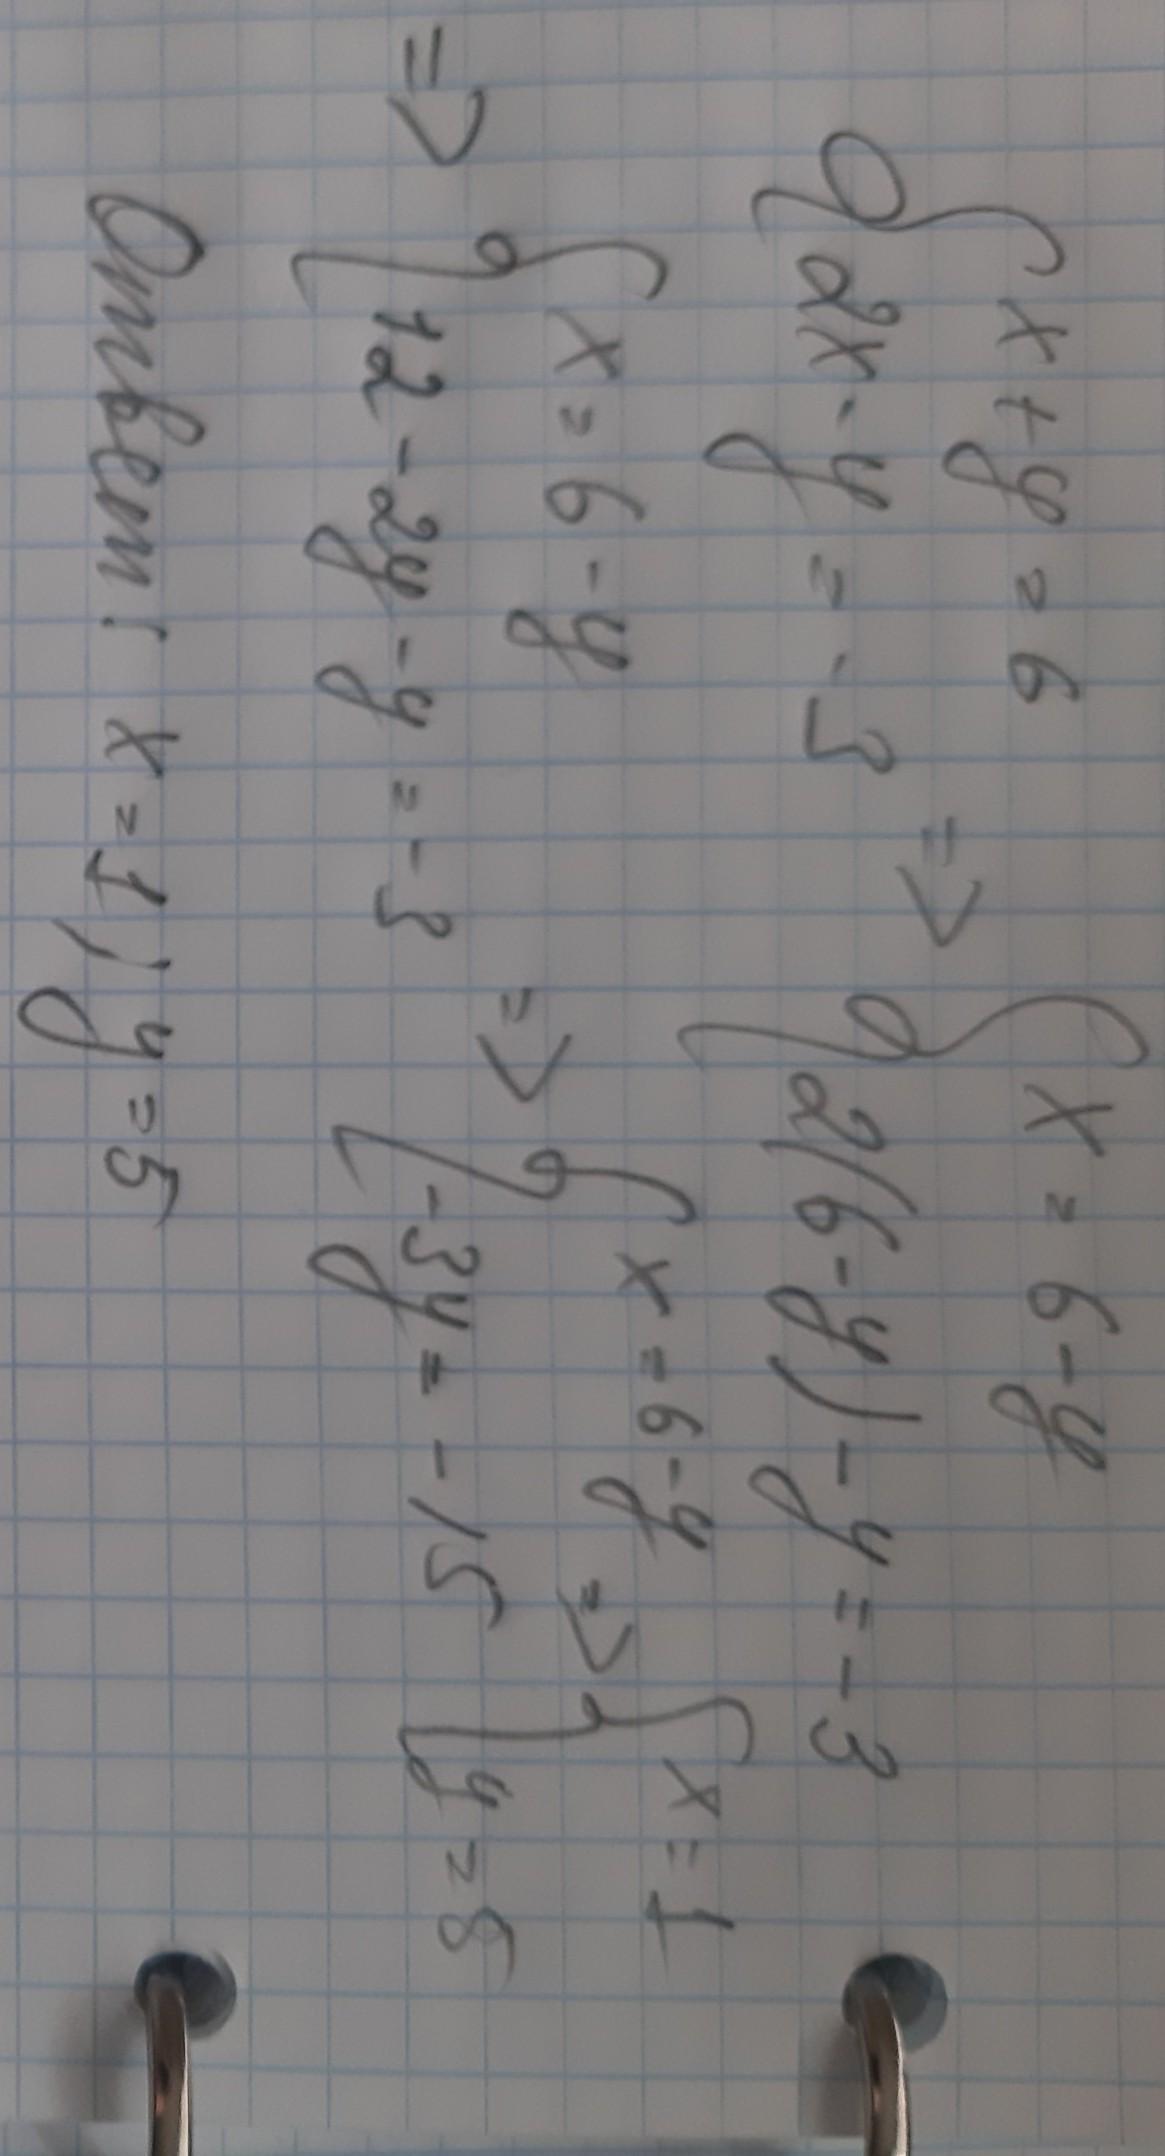 { x + y = 6
{ 2x - y = -3 => { x = 6 - y
{ 2(6 - y) - y = -3
=> { x = 6 - y
{ 12 - 2y - y = -3 => { x = 6 - y
{ -3y = -15 => { x = 1
{ y = 5
Ответ: x = 1, y = 5